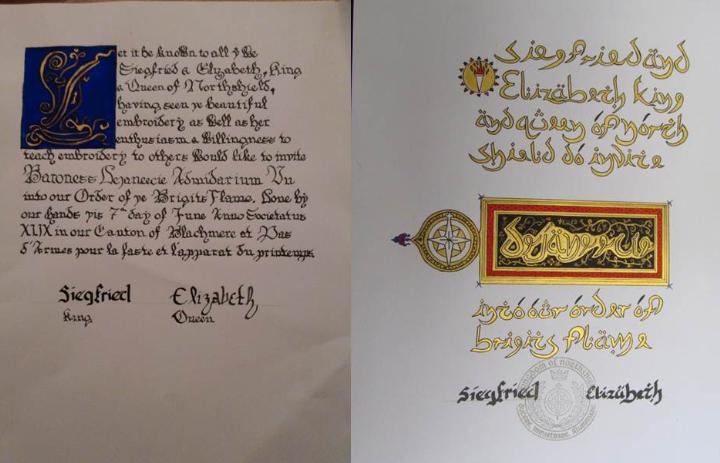 Let it be known to all y We
Siegfried & Elizabeth, King
& Queen of Northshield,
having seen ye beautiful
embroidery as well as her
enthusiasm & willingness to
teach embroidery to others would like to invite
Baroness Dejaneecie Admidarium Vu
into our Order of ye Brigits Flame. Done by
our hands yis 7th day of June Anno Societatus
XLIX in our Canton of Blachmere at Pas
d'Armes pour la faste et l'apparat du printemps
Siegfried Elizabeth
King Queen
Siegfried and
Elizabeth king
and queen of north
shield do invite
into our order of
brigits flame
Siegfried Elizabeth
kingdom of